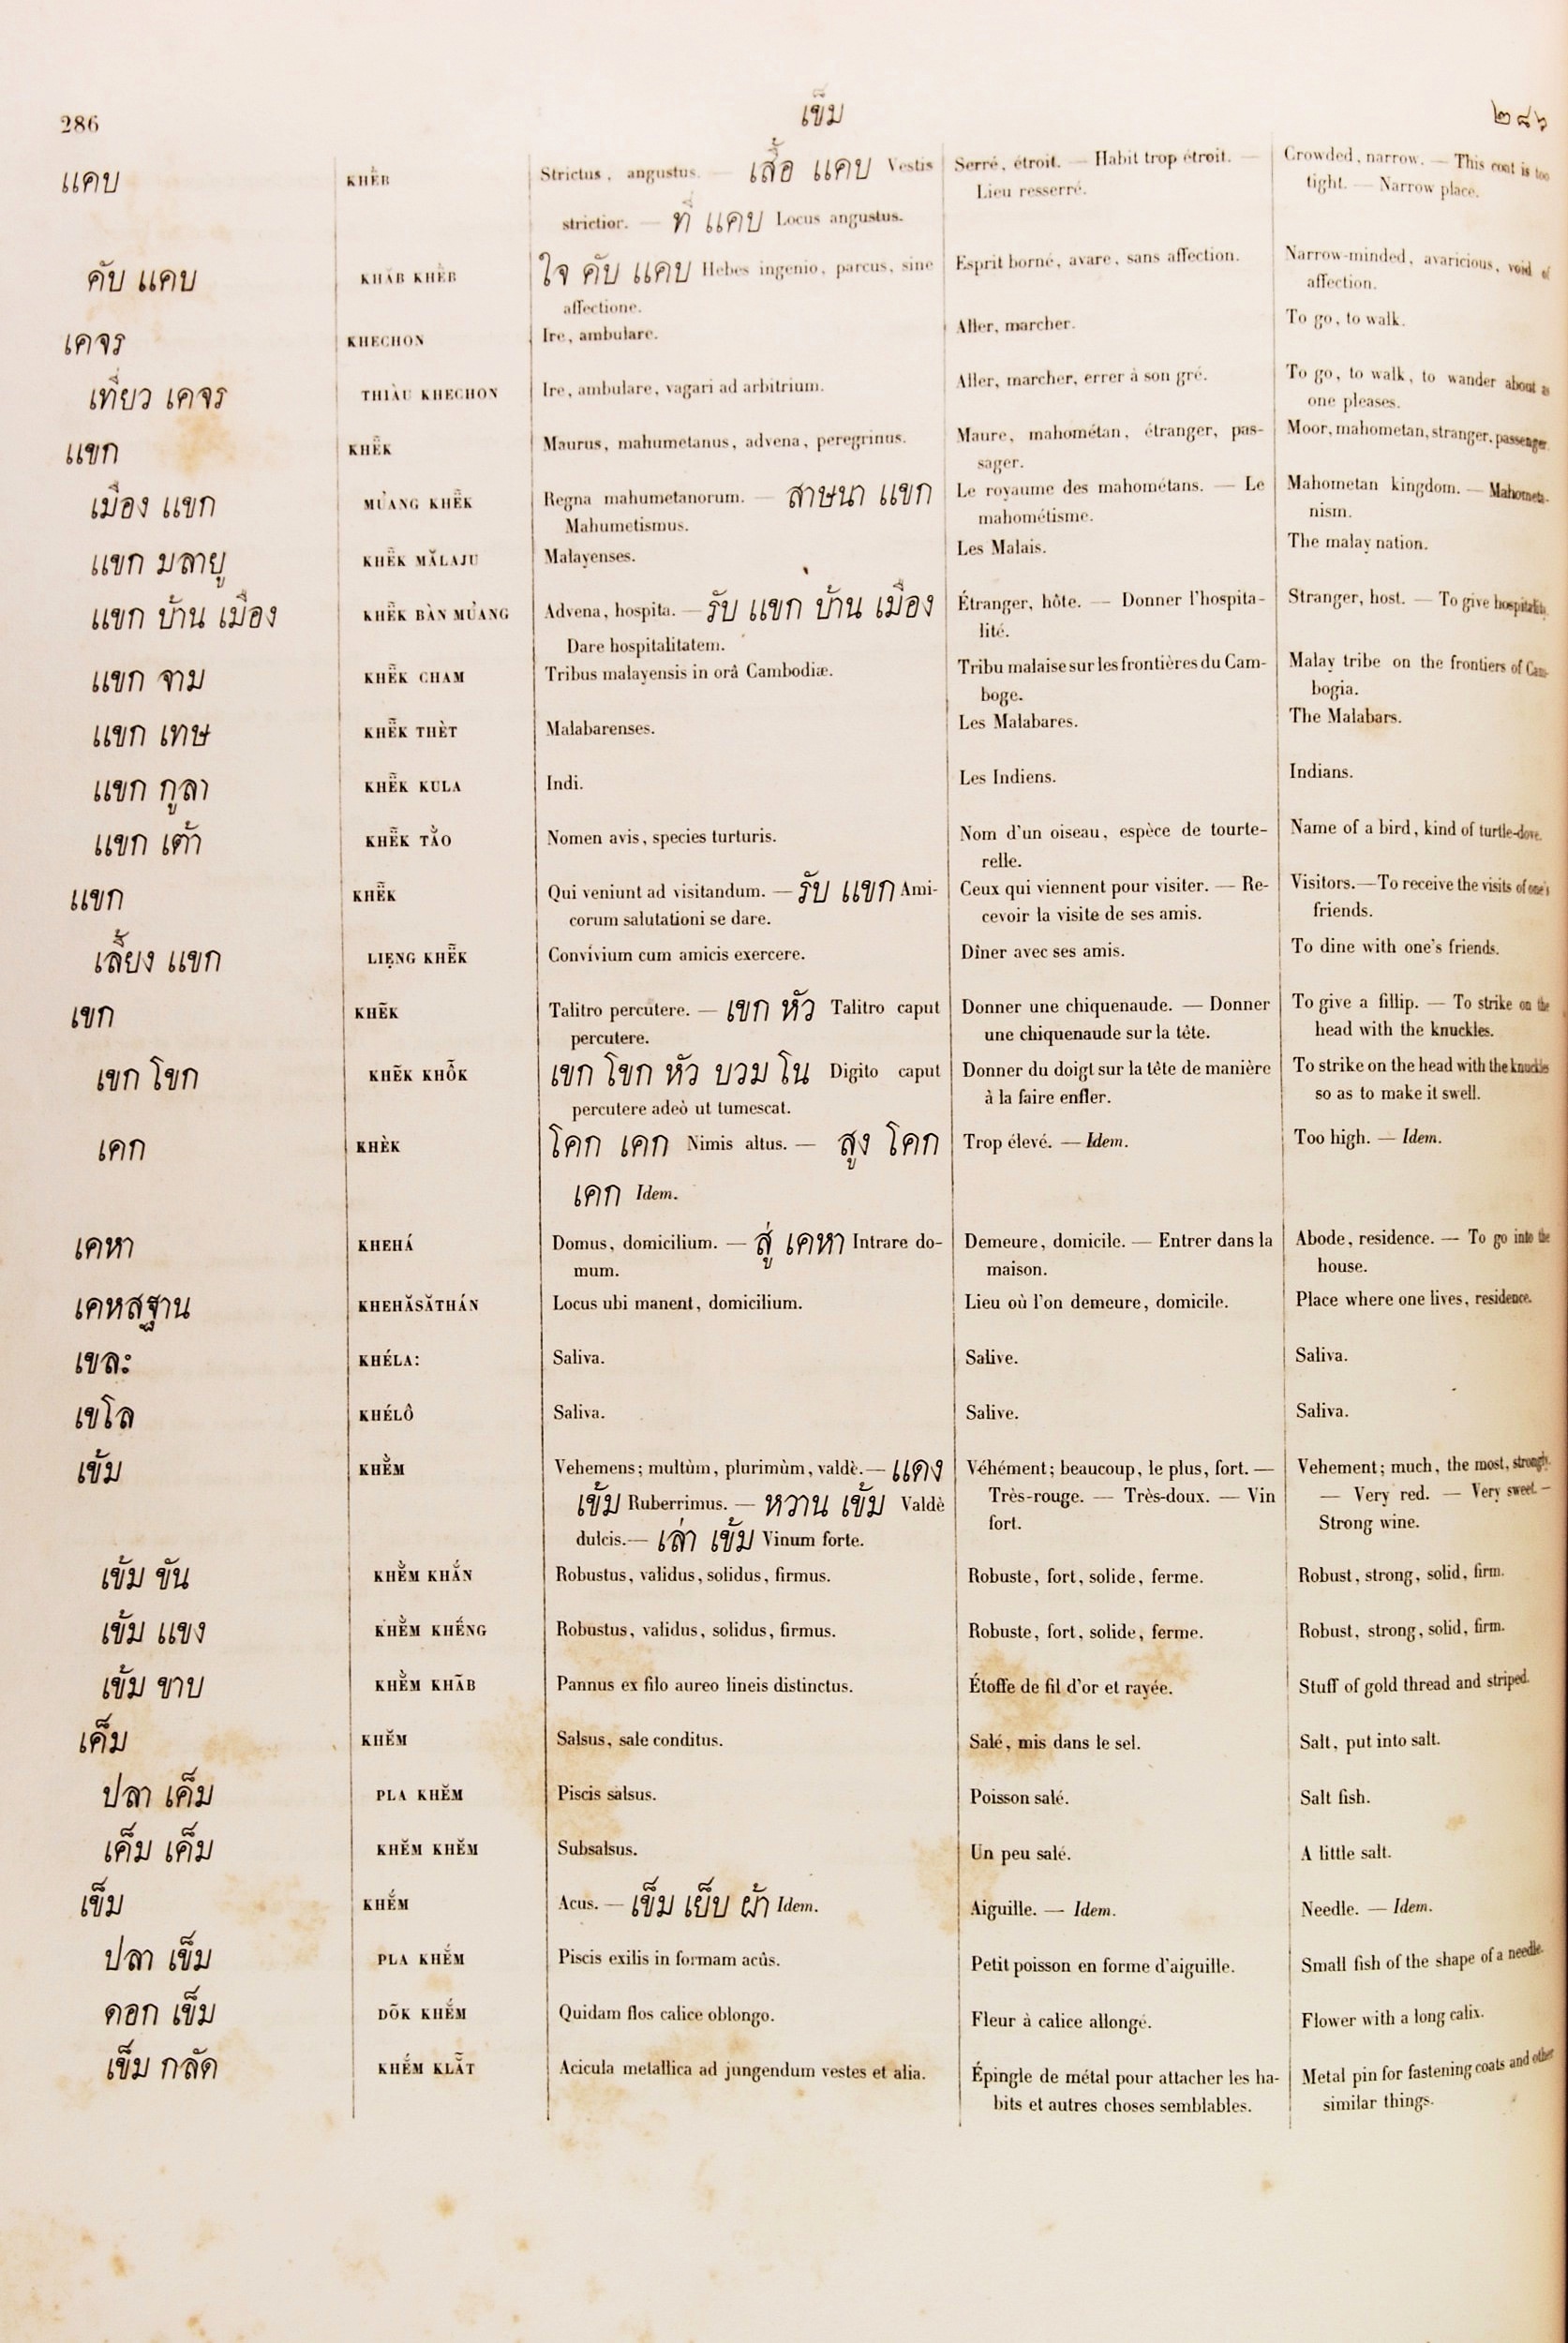 286 เข็ม ๒๘๖
แคบ KHẺB Strictus, angustus. — เสื้อ แคบ Vestis Serré, étroit. — Habit trop étroit. — Crowded, narrow. — This coat is too
Lieu resserré. tight. — Narrow place.
strictior. — ที่ แคบ Locus angustus.
คับ แคบ KHĂB KHẺB ใจ คับ แคบ Hebes ingenio, parcus, sine Esprit borné, avare, sans affection. Narrow-minded, avaricious, void of
affectione. affection.
เคจร KHECHON Ire, ambulare. Aller, marcher. To go, to walk.
เที่ยว เคจร THIÀU KHECHON Ire, ambulare, vagari ad arbitrium. Aller, marcher, errer à son gré. To go, to walk, to wander about as
one pleases.
แขก KHẼK Maurus, mahumetanus, advena, peregrinus. Maure, mahométan, étranger, pas- Moor, mahometan, stranger, passenger.
sager.
เมือง แขก MU̓ANG KHẼK Regna mahumetanorum. — สาษนา แขก Le royaume des mahométans. — Le Mahometan kingdom. — Mahometa-
Mahumetismus. mahométisme. nism.
แขก มลายู KHẼK MĂLAJU Malayenses. Les Malais. The malay nation.
แขก บ้าน เมือง KHẼK BÀN MU̓ANG Advena, hospita. — รับ แขก บ้าน เมือง Étranger, hôte. — Donner l'hospita- Stranger, host. — To give hospitality.
Dare hospitalitatem. lité.
แขก จาม KHẼK CHAM Tribus malayensis in orâ Cambodiæ. Tribu malaise sur les frontières du Cam- Malay tribe on the frontiers of Cam-
boge. bogia.
แขก เทษ KHẼK THÈT Malabarenses. Les Malabares. The Malabars.
แขก กูลา KHẼK KULA Indi. Les Indiens. Indians.
แขก เต้า KHẼK TẰO Nomen avis, species turturis. Nom d'un oiseau, espèce de tourte- Name of a bird, kind of turtle-dove.
relle.
แขก KHẼK Qui veniunt ad visitandum. — รับ แขก Ami- Ceux qui viennent pour visiter. — Re- Visitors. — To receive the visits of one's
corum salutationi se dare. cevoir la visite de ses amis. friends.
เลี้ยง แขก LIẸNG KHẼK Convivium cum amicis exercere. Dîner avec ses amis. To dine with one's friends.
เขก KHẼK Talitro percutere. — เขก หัว Talitro caput Donner une chiquenaude. — Donner To give a fillip. — To strike on the
percutere. une chiquenaude sur la tête. head with the knuckles.
เขก โขก KHẼK KHỖK เขก โขก หัว บวม โน Digito caput Donner du doigt sur la tête de manière To strike on the head with the knuckles
percutere adeò ut tumescat. à la faire enfler. so as to make it swell.
เคก KHÈK โคก เคก Nimis altus. — สูง โคก Trop élevé. — Idem. Too high. — Idem.
เคก Idem.
เคหา KHEHÁ Domus, domicilium. — สู่ เคหา Intrare do- Demeure, domicile. — Entrer dans la Abode, residence. — To go into the
mum. maison. house.
เคหสฐาน KHEHĂSĂTHÁN Locus ubi manent, domicilium. Lieu où l'on demeure, domicile. Place where one lives, residence.
เขละ KHÉLA: Saliva. Salive. Saliva.
เขโล KHÉLÔ Saliva. Salive. Saliva.
เข้ม KHẰM Vehemens; multùm, plurimùm, valdè. — แดง Véhément; beaucoup, le plus, fort. — Vehement; much, the most, strongly.
เข้ม Ruberrimus. — หวาน เข้ม Valdè Très-rouge. — Très-doux. — Vin — Very red. — Very sweet. —
dulcis. — เล่า เข้ม Vinum forte. fort. Strong wine.
เข้ม ขัน KHẺM KHẮN Robustus, validus, solidus, firmus. Robuste, fort, solide, ferme. Robust, strong, solid, firm.
เข้ม แขง KHẺM KHẾNG Robustus, validus, solidus, firmus. Robuste, fort, solide, ferme. Robust, strong, solid, firm.
เข้ม ขาบ KHẺM KHÃB Pannus ex filo aureo lineis distinctus. Étoffe de fil d'or et rayée. Stuff of gold thread and striped.
เค็ม KHĔM Salsus, sale conditus. Salé, mis dans le sel. Salt, put into salt.
ปลา เค็ม PLA KHĔM Piscis salsus. Poisson salé. Salt fish.
เค็ม เค็ม KHĔM KHĔM Subsalsus. Un peu salé. A little salt.
เข็ม KHĔ́M Acus. — เข็ม เย็บ ผ้า Idem. Aiguille. — Idem. Needle. — Idem.
ปลา เข็ม PLA KHĔ́M Piscis exilis in formam acûs. Petit poisson en forme d'aiguille. Small fish of the shape of a needle.
ดอก เข็ม DÕK KHĔ́M Quidam flos calice oblongo. Fleur à calice allongé. Flower with a long calix.
เข็ม กลัด KHĔ́M KLẴT Acicula metallica ad jungendum vestes et alia. Épingle de métal pour attacher les ha- Metal pin for fastening coats and other
bits et autres choses semblables. similar things.